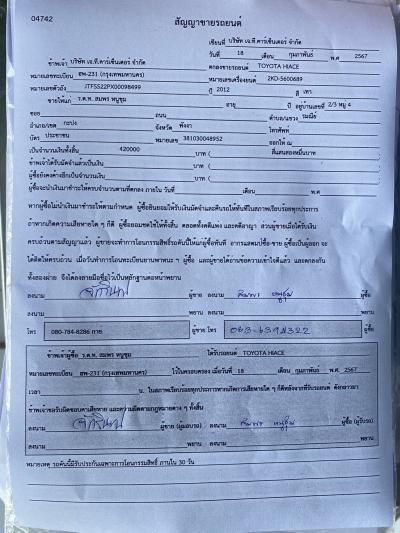 04742
สัญญาขายรถยนต์
เขียนที่ บริษัท เจ.ที.คาร์เซ็นเตอร์ จำกัด
วันที่ 18 เดือน กุมภาพันธ์ พ.ศ 2567
ข้าพเจ้า บริษัท เจ.ที.คาร์เซ็นเตอร์ จำกัด ตกลงขายรถยนต์ TOYOTA HIACE
หมายเลขทะเบียน สพ-231 (กรุงเทพมหานคร) หมายเลขเครื่องยนต์ 2KD-5600689
หมายเลขตัวถัง JTFSS22PX00098499 ปี 2012 สี เทา
ขายให้แก่ ร.ต.ท. สมพร หนูชุม อายุ ปี อยู่บ้านเลขที่ 2/3 หมู่ 4
ซอย ถนน ตำบล/แขวง รมณีย์
อำเภอ/เขต กะปง จังหวัด พังงา โทรศัพท์
บัตร ประชาชน หมายเลข 381030048952 ออกให้ ณ
เป็นจำนวนเงินทั้งสิ้น 420000 บาท ( สี่แสนสองหมื่นบาท
ข้าพเจ้าได้รับมัดจำแล้วเป็นเงิน บาท (
ผู้ซื้อยังคงค้างอีกเป็นจำนวนเงิน บาท (
ผู้ซื้อจะนำเงินมาชำระให้ครบจำนวนตามที่ตกลง ภายใน วันที่ เดือน พ.ศ
หากผู้ซื้อไม่นำเงินมาชำระให้ตามกำหนด ผู้ซื้อยินยอมให้ริบเงินมัดจำและคืนรถให้ทันทีในสภาพเรียบร้อยทุกประการ
ถ้าหากเกิดความเสียหายใด ๆ ก็ดี ผู้ซื้อยอมชดใช้ให้ทั้งสิ้น ตลอดทั้งคดีแพ่ง และคดีอาญา ส่วนผู้ขายเมื่อได้รับเงิน
ครบถ้วนตามสัญญาแล้ว ผู้ขายจะทำการโอนกรรมสิทธิ์รถคันนี้ให้แก่ผู้ซื้อทันที
ได้ติดให้ครบถ้วน เมื่อวันทำการโอนทะเบียนยานพาหนะ ๆ ผู้ซื้อ และผู้ขายได้อ่านข้อความเข้าใจดีแล้ว และตกลงกัน
ทั้งสองฝ่าย จึงได้ลงลายมือชื่อไว้เป็นหลักฐานต่อหน้าพยาน
ลงนาม ผู้ขาย ลงนาม สมพร หนูชุม ผู้ซื้อ
ลงนาม พยาน ลงนาม พยาน
โทร 080-784-8286 กาย ผู้ขาย โทร ผู้ซื้อ
ข้าพเจ้าผู้ซื้อ ร.ต.ท. สมพร หนูชุม ได้รับรถยนต์ TOYOTA HIACE
หมายเลขทะเบียน สพ-231 (กรุงเทพมหานคร) ไว้ในครอบครอง เมื่อวันที่ 18 เดือน กุมภาพันธ์ พ.ศ. 2567
เวลา น. ในสภาพเรียบร้อยทุกประการหากเกิดการเสียหายใด ๆ ก็ดีหลังจากที่รับรถยนต์ ดังกล่าวมา
ข้าพเจ้าขอรับผิดชอบค่าเสียหาย และความผิดตามกฎหมายต่าง ๆ ทั้งสิ้น
ลงนาม ผู้ขาย (ผู้มอบรถ) ลงนาม สมพร หนูชุม ผู้ซื้อ (ผู้รับรถ)
ลงนาม พยาน ลงนาม พยาน
หมายเหตุ รถคันนี้มีรับประกันเฉพาะการโอนกรรมสิทธิ์ ภายใน 30 วัน